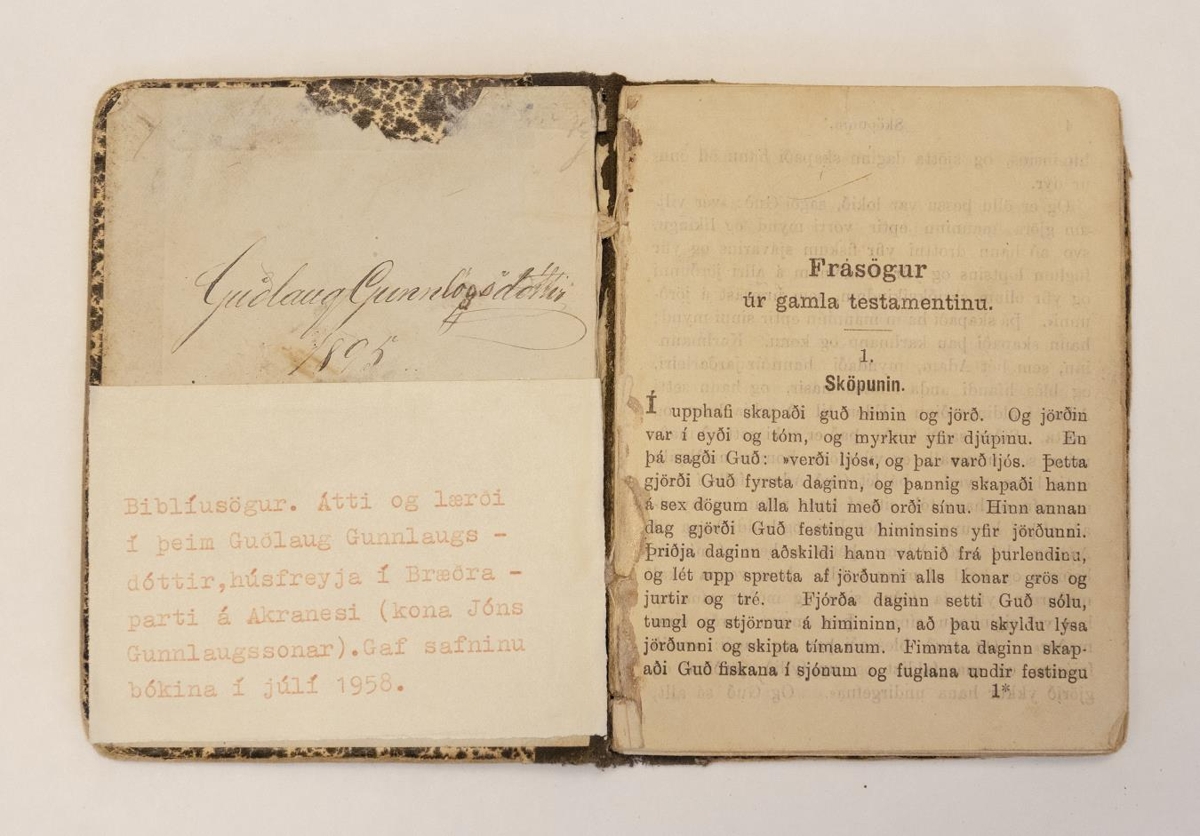 Guðlaug Gunnlögsdóttir
1895
Biblíusögur. Átti og lærði
í þeim Guðlaug Gunnlaugs -
dóttir, húsfreyja í Bræðra -
parti á Akranesi (kona Jóns
Gunnlaugssonar). Gaf safninu
bókina í júlí 1958.
Frásögur
úr gamla testamentinu.
1.
Sköpunin.
Í upphafi skapaði guð himin og jörð. Og jörðin
var í eyði og tóm, og myrkur yfir djúpinu. En
þá sagði Guð: »verði ljós«, og þar varð ljós. Þetta
gjörði Guð fyrsta daginn, og þannig skapaði hann
á sex dögum alla hluti með orði sínu. Hinn annan
dag gjörði Guð festingu himinsins yfir jörðunni.
Þriðja daginn aðskildi hann vatnið frá þurlendinu,
og lét upp spretta af jörðunni alls konar grös og
jurtir og tré. Fjórða daginn setti Guð sólu,
tungl og stjörnur á himininn, að þau skyldu lýsa
jörðunni og skipta tímanum. Fimmta daginn skap-
aði Guð fiskana í sjónum og fuglana undir festingu
1*